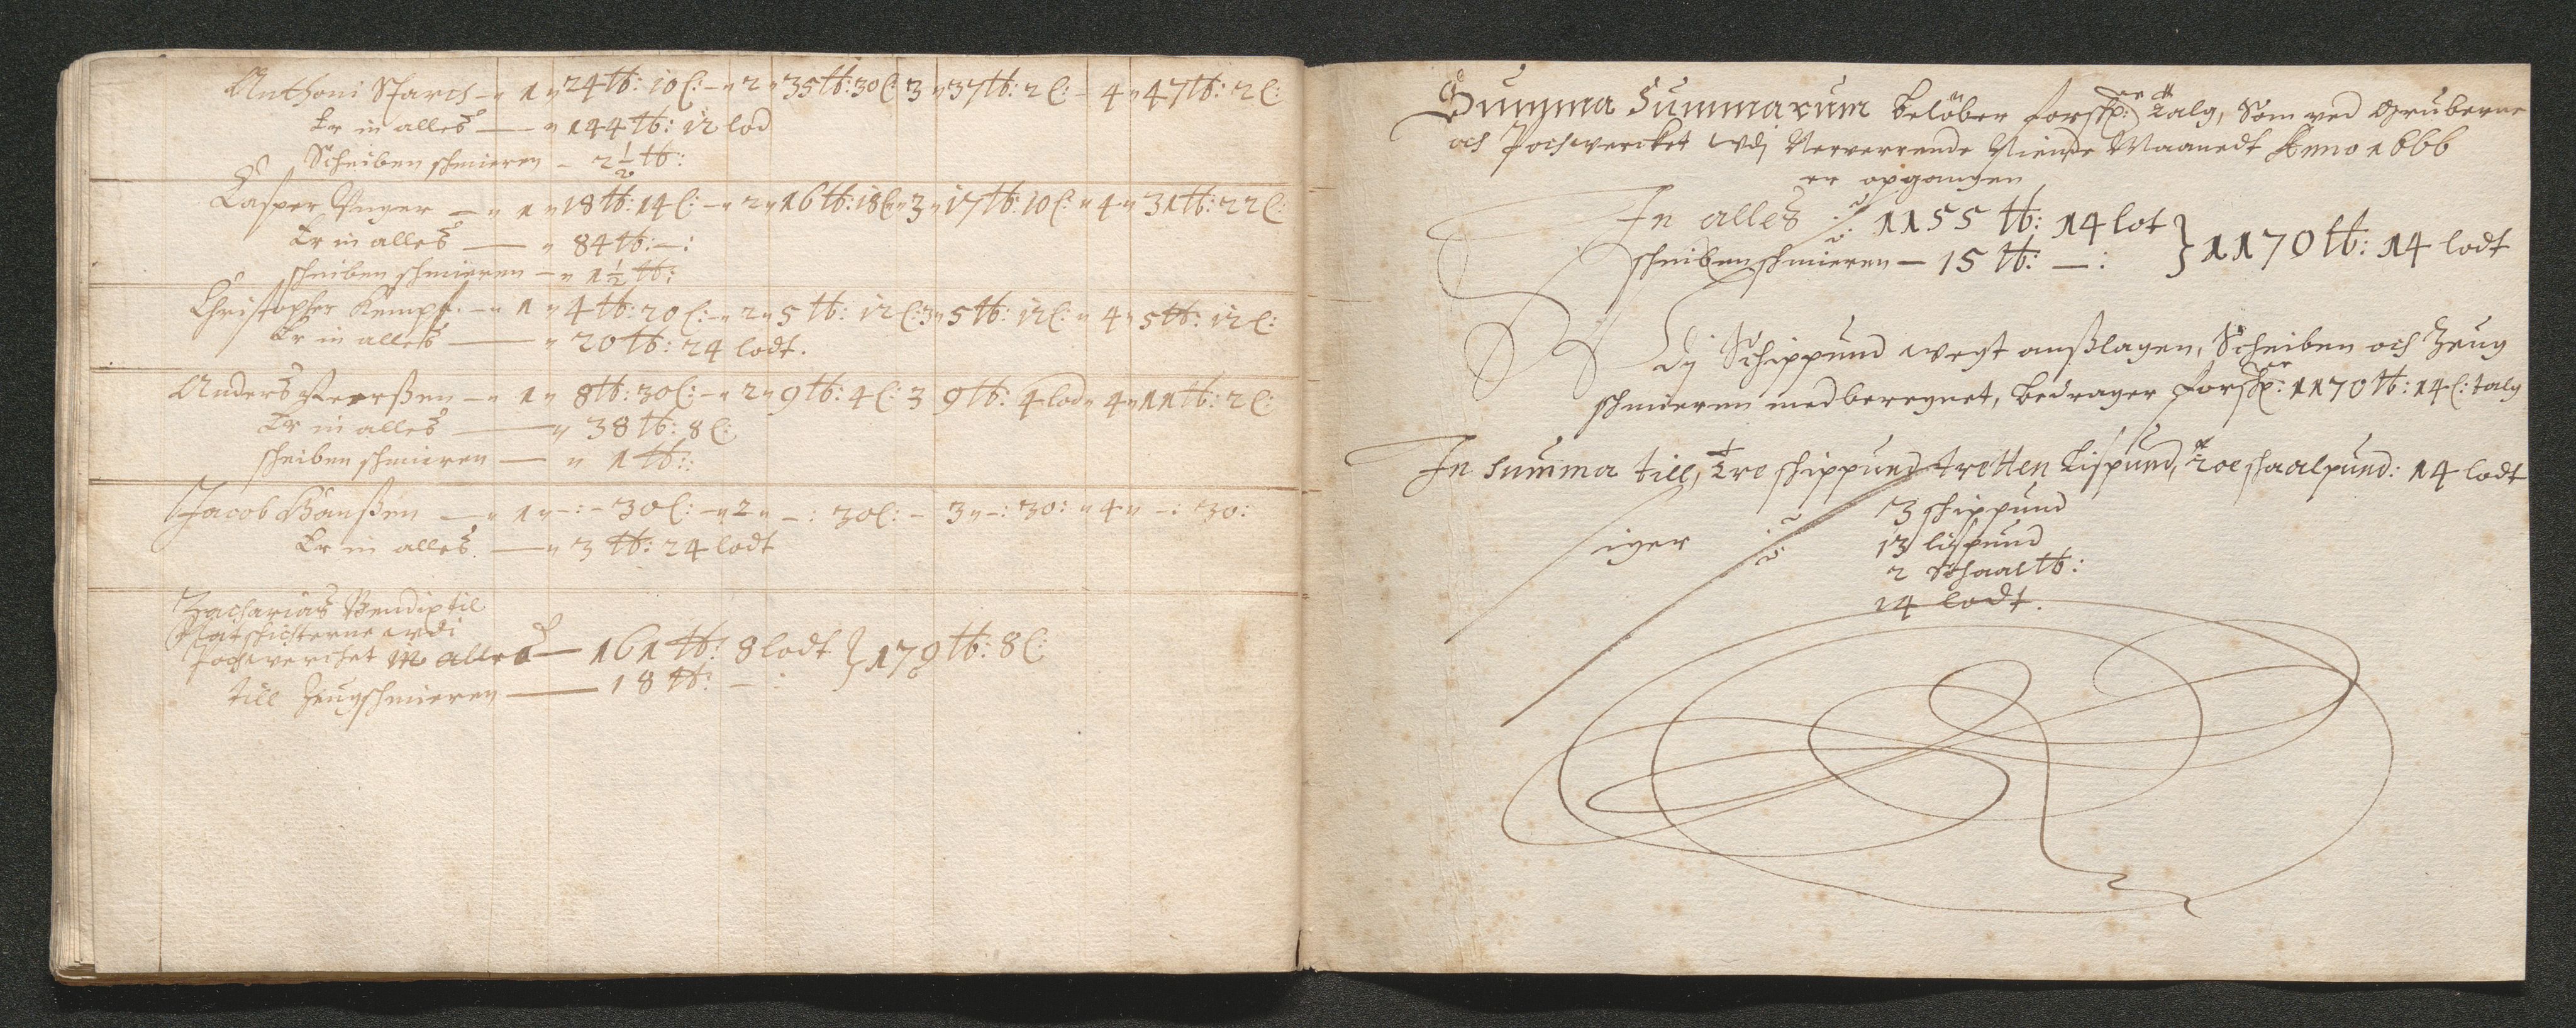 Anthoni Starch – „ 1 „ 24 ℔: 10 l: – „ 2 „ 35 ℔: 30 l: 3 „ 37 ℔: 2 l: – 4 „ 47 ℔: 2 l:
Er in alles — „ 144 ℔: 12 lod
Scheiben schmieren – 2 1/2 ℔:
Casper Unger – „ 1 „ 18 ℔: 14 l: – „ 2 „ 16 ℔: 18 l: „ 3 „ 17 ℔: 10 l: „ 4 „ 31 ℔: 22 l:
Er in alles — „ 84 ℔: – :
scheiben schmieren – „ 1 1/2 ℔:
Christopher Kempf. – „ 1 „ 4 ℔: 20 l: – „ 2 „ 5 ℔: 12 l: 3 „ 5 ℔: 12 l: „ 4 „ 5 ℔: 12 l:
Er in alles — „ 20 ℔: 24 lodt.
Anders – „ 1 „ 8 ℔: 30 l: – „ 2 „ 9 ℔: 4 l: 3 9 ℔: 4 lod „ 4 „ 11 ℔: 2 l:
Er in alles — „ 38 ℔: 8 l:
scheiben schmieren — „ 1 ℔::
Jacob Hanßen — „ 1 „ – : – 30 l: – „ 2 „ – : 30 l: – 3 „ – : 30: „ 4 „ – : 30:
Er in alles. — „ 3 ℔: 24 lodt
Zacharias Bendix til
Natschichterne wdi
Pochwercket in alles — 161 ℔: 8 lodt } 179 ℔: 8 l:
till Zeugschmieren — 18 ℔: – :
Summa Summarum belöber forschr: talg, Som ved Gruberne
och Pochwercket wdj Nerverrende Niende Maanedt Anno 1666
er opgangen
In alles 1155 ℔: 14 lot } 1170 ℔: 14 lodt
scheibenschmieren – 15 ℔: – :
Dj Schippund wegt anßlagen, Scheiben och Zeug
schmieren med beregnet, bedrager forschr: 1170 ℔: 14 l: talg
In Summa till, Tre schippund tretten Lispund, toe schaalpund: 14 lodt
iger 3 schippund
13 lispund
2 Schaal ℔:
14 lodt.